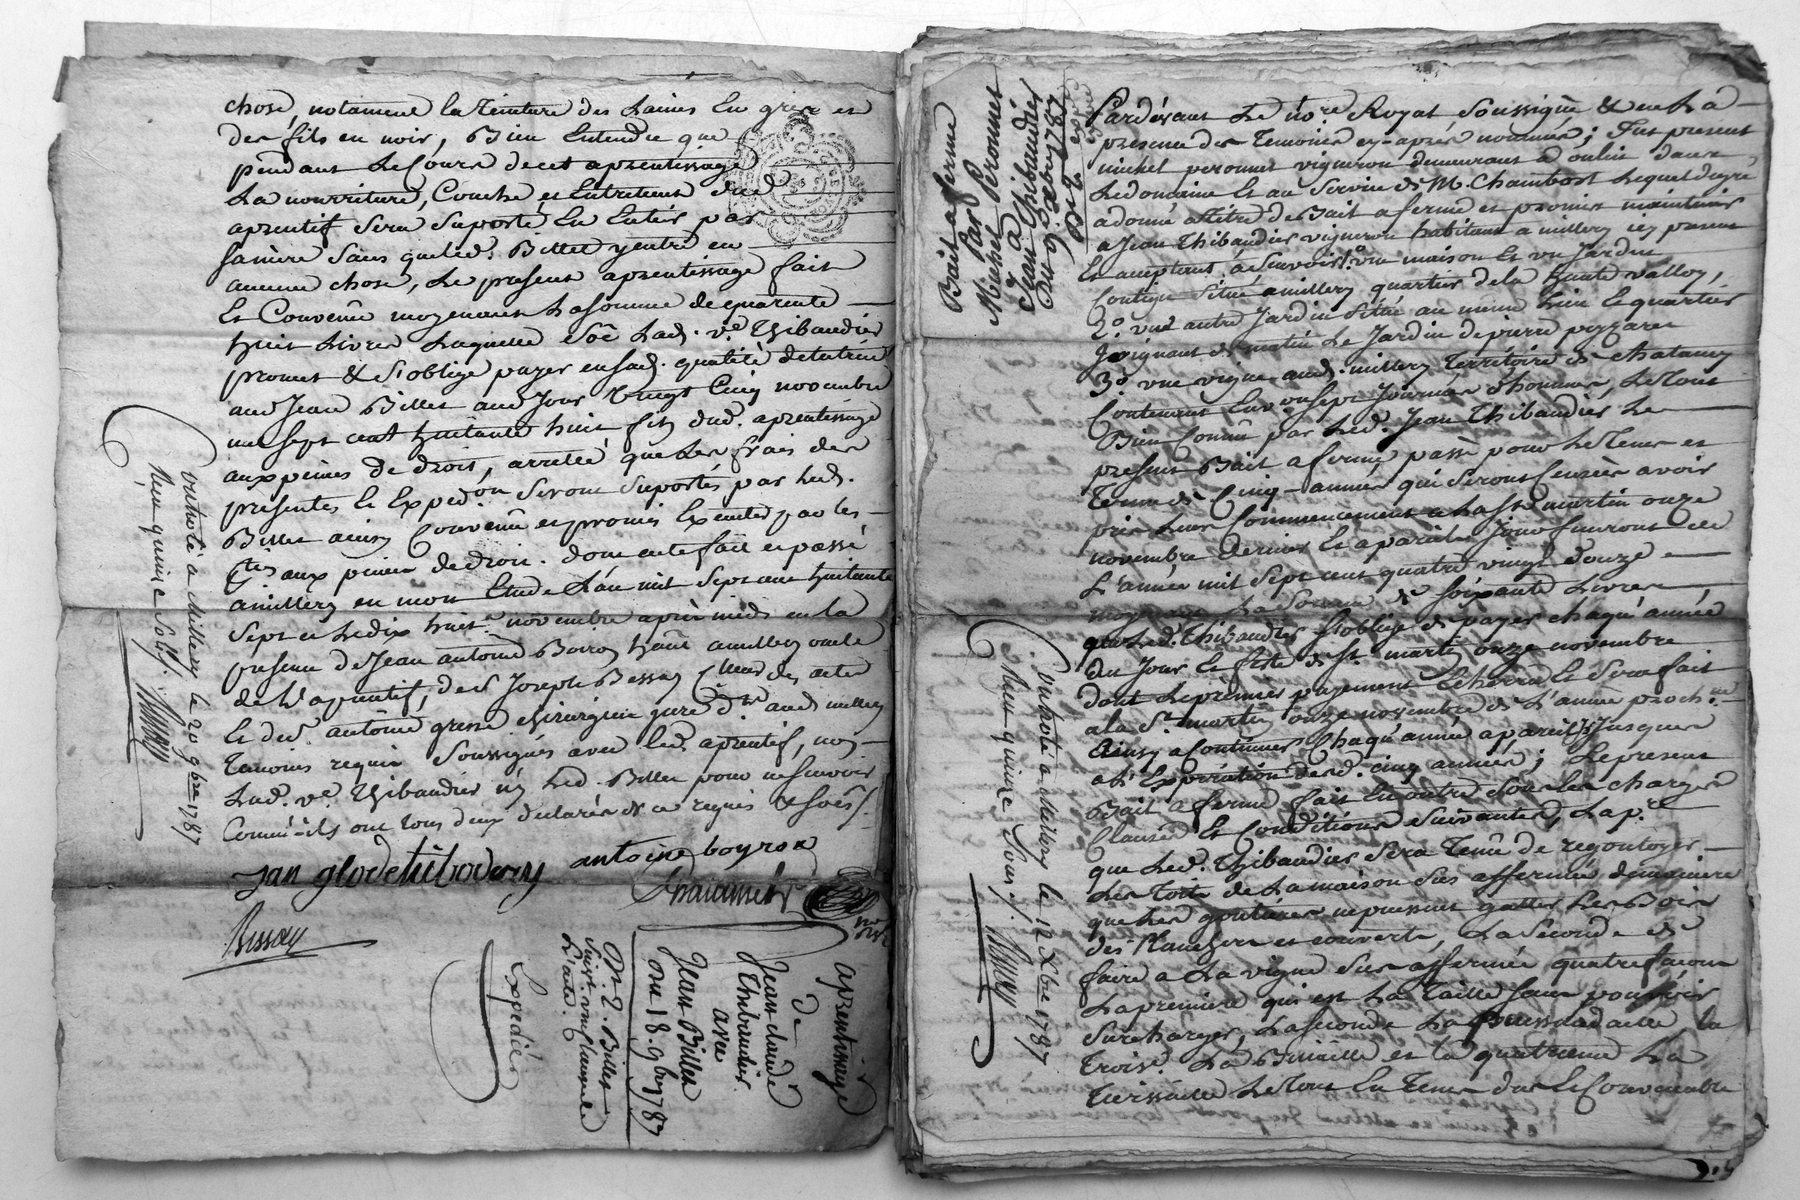 chose, notament la Teinture des Laines en grize et
des fils en noir, Bien Entendu que
pendant le Cours de cet aprentissage
La nourriture, Couche et Entretient dud.
aprentif sera suporté En Entier par
sa mère sans que led. Billet y entre en
aucune chose, Le present aprentissage fait
Et Convenû moyennant La somme de quarente
huit Livres Laquelle soẽ Lad. ve. Thibaudier
promet & s'oblige payer en sad. qualité de tutrice
aud. Jean Billet au Jour vingt Cinq novembre
mil sept cent huitante huit fin dud. aprentissage
aux peines de droit, arrêté que Les frais des
présentes Et Expedon. seront suportés par Led.
Billet ainsy Convenû et promis Exécuter par les
ptis. aux peines de droit. dont acte fait et passé
a millery en mon Etude L'an mil sept cent huitante
sept et Le dix huit novembre après midi en la
presence de Jean antoine Boiron habt. a millery oncle
de L'aprentif, de sr. Joseph Besson Clerc des actes
Et de sr. antoine grasse chirurgien juré dt. aud. millery
Temoins requis Soussignés avec led. aprentif, non
Lad. ve. Thibaudier ny Led. Billet pour ne sçavoir
Comme ils ont tous deux déclarés de ce requis &
Jan glode tibodery antoine boyron
Besson
controlé a Millery le 20 9bre 1787
Reçu quinze sols.
aprentissage
de
Jean claude
Thibaudier
avec
Jean Billet
Du 18. 9bre 1787
L'acte.
Expedié
Bail a ferme
Par
Michel Peronnet
à
Jean Thibaudier
Du 9. Xbre 1787
Pardevant Le nore. Royal Soussigné & en La
presence des Temoins cy-après nommés; Fut present
michel peronnet vigneron demeurant a oulins dans
Le domaine Et au Service de M. Chambost Lequel de gré
a donné a titre de Bail a ferme et promis maintenir
a Jean Thibaudier vigneron habitant a millery icy present
Et acceptant. à Sçavoir 1o. une maison Et un Jardin
Contigu Situé a millery quartier de la haute valloy,
2o. un autre Jardin Situé au meme Lieu Et quartier
Joignant de matin Le Jardin de pierre
3o. une vigne aud. millery Territoire de chatanay
Contenant Environ sept Journées d'hommes, Le Tout
Bien Connû par Led. Jean Thibaudier Le
present Bail a ferme passé pour Le Tems et
Terme de Cinq années qui seront Censées avoir
pris Leur Commencement a La St. martin onze
novembre dernier Et a pareils Jour finiront en
L'année mil sept cent quatre vingt douze
moyennant La Somme de soixante Livres
que Led. Thibaudier s'oblige de payer chaque année
au Jour Et fête de St. martin onze novembre
dont Le premier payement Echerra Et sera fait
a la St. martin onze novembre de L'année proch.ne
Ainsy a Continuer Chaque année a pareil Jusques
a L'Expiration desd. cinq années; Le present
Bail a ferme fait En outre sous Les charges
Clauses Et Conditions Suivantes, La p.re
que Led. Thibaudier sera Tenû de regoutoyer
Les Toits de La maison sus affermée de maniere
que Les goutieres ne puissent gatter Les Bois
des Planchers et couverts, La Seconde de
faire a La vigne sus affermée quatre façons
La premiere qui est La Taille sans pouvoir
Surcharger, La seconde La
Troise. La Binaille et la quatrieme La
Tiersaille Le Tout En Tems dus Et Convenable
controlé a Millery le 12 Xbre 1787
Reçu quinze sous.